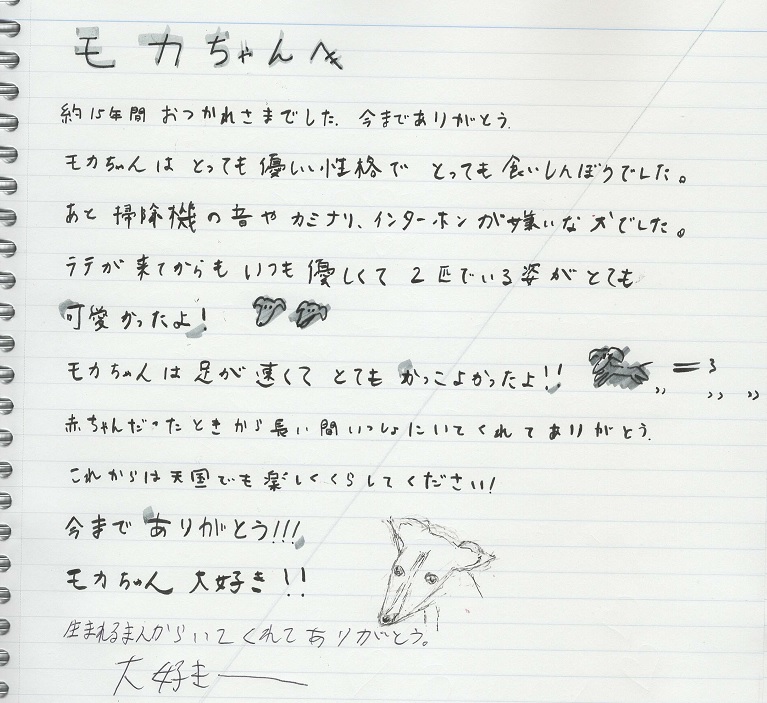 モカちゃんへ
約15年間 おつかれさまでした. 今までありがとう.
モカちゃんは とっても優しい性格で とっても食いしんぼうでした。
あと 掃除機の音や カミナリ、インターホンが嫌いな犬でした。
ラテが来てからも いつも優しくて 2匹でいる姿がとても
可愛かったよ!
モカちゃんは足が速くて とても かっこよかったよ!!
赤ちゃんだったときから長い間いっしょにいてくれてありがとう.
これからは天国でも楽しくくらしてください!
今まで ありがとう!!!
モカちゃん 大好き!!
生まれるまえからいてくれてありがとう。
大好きー